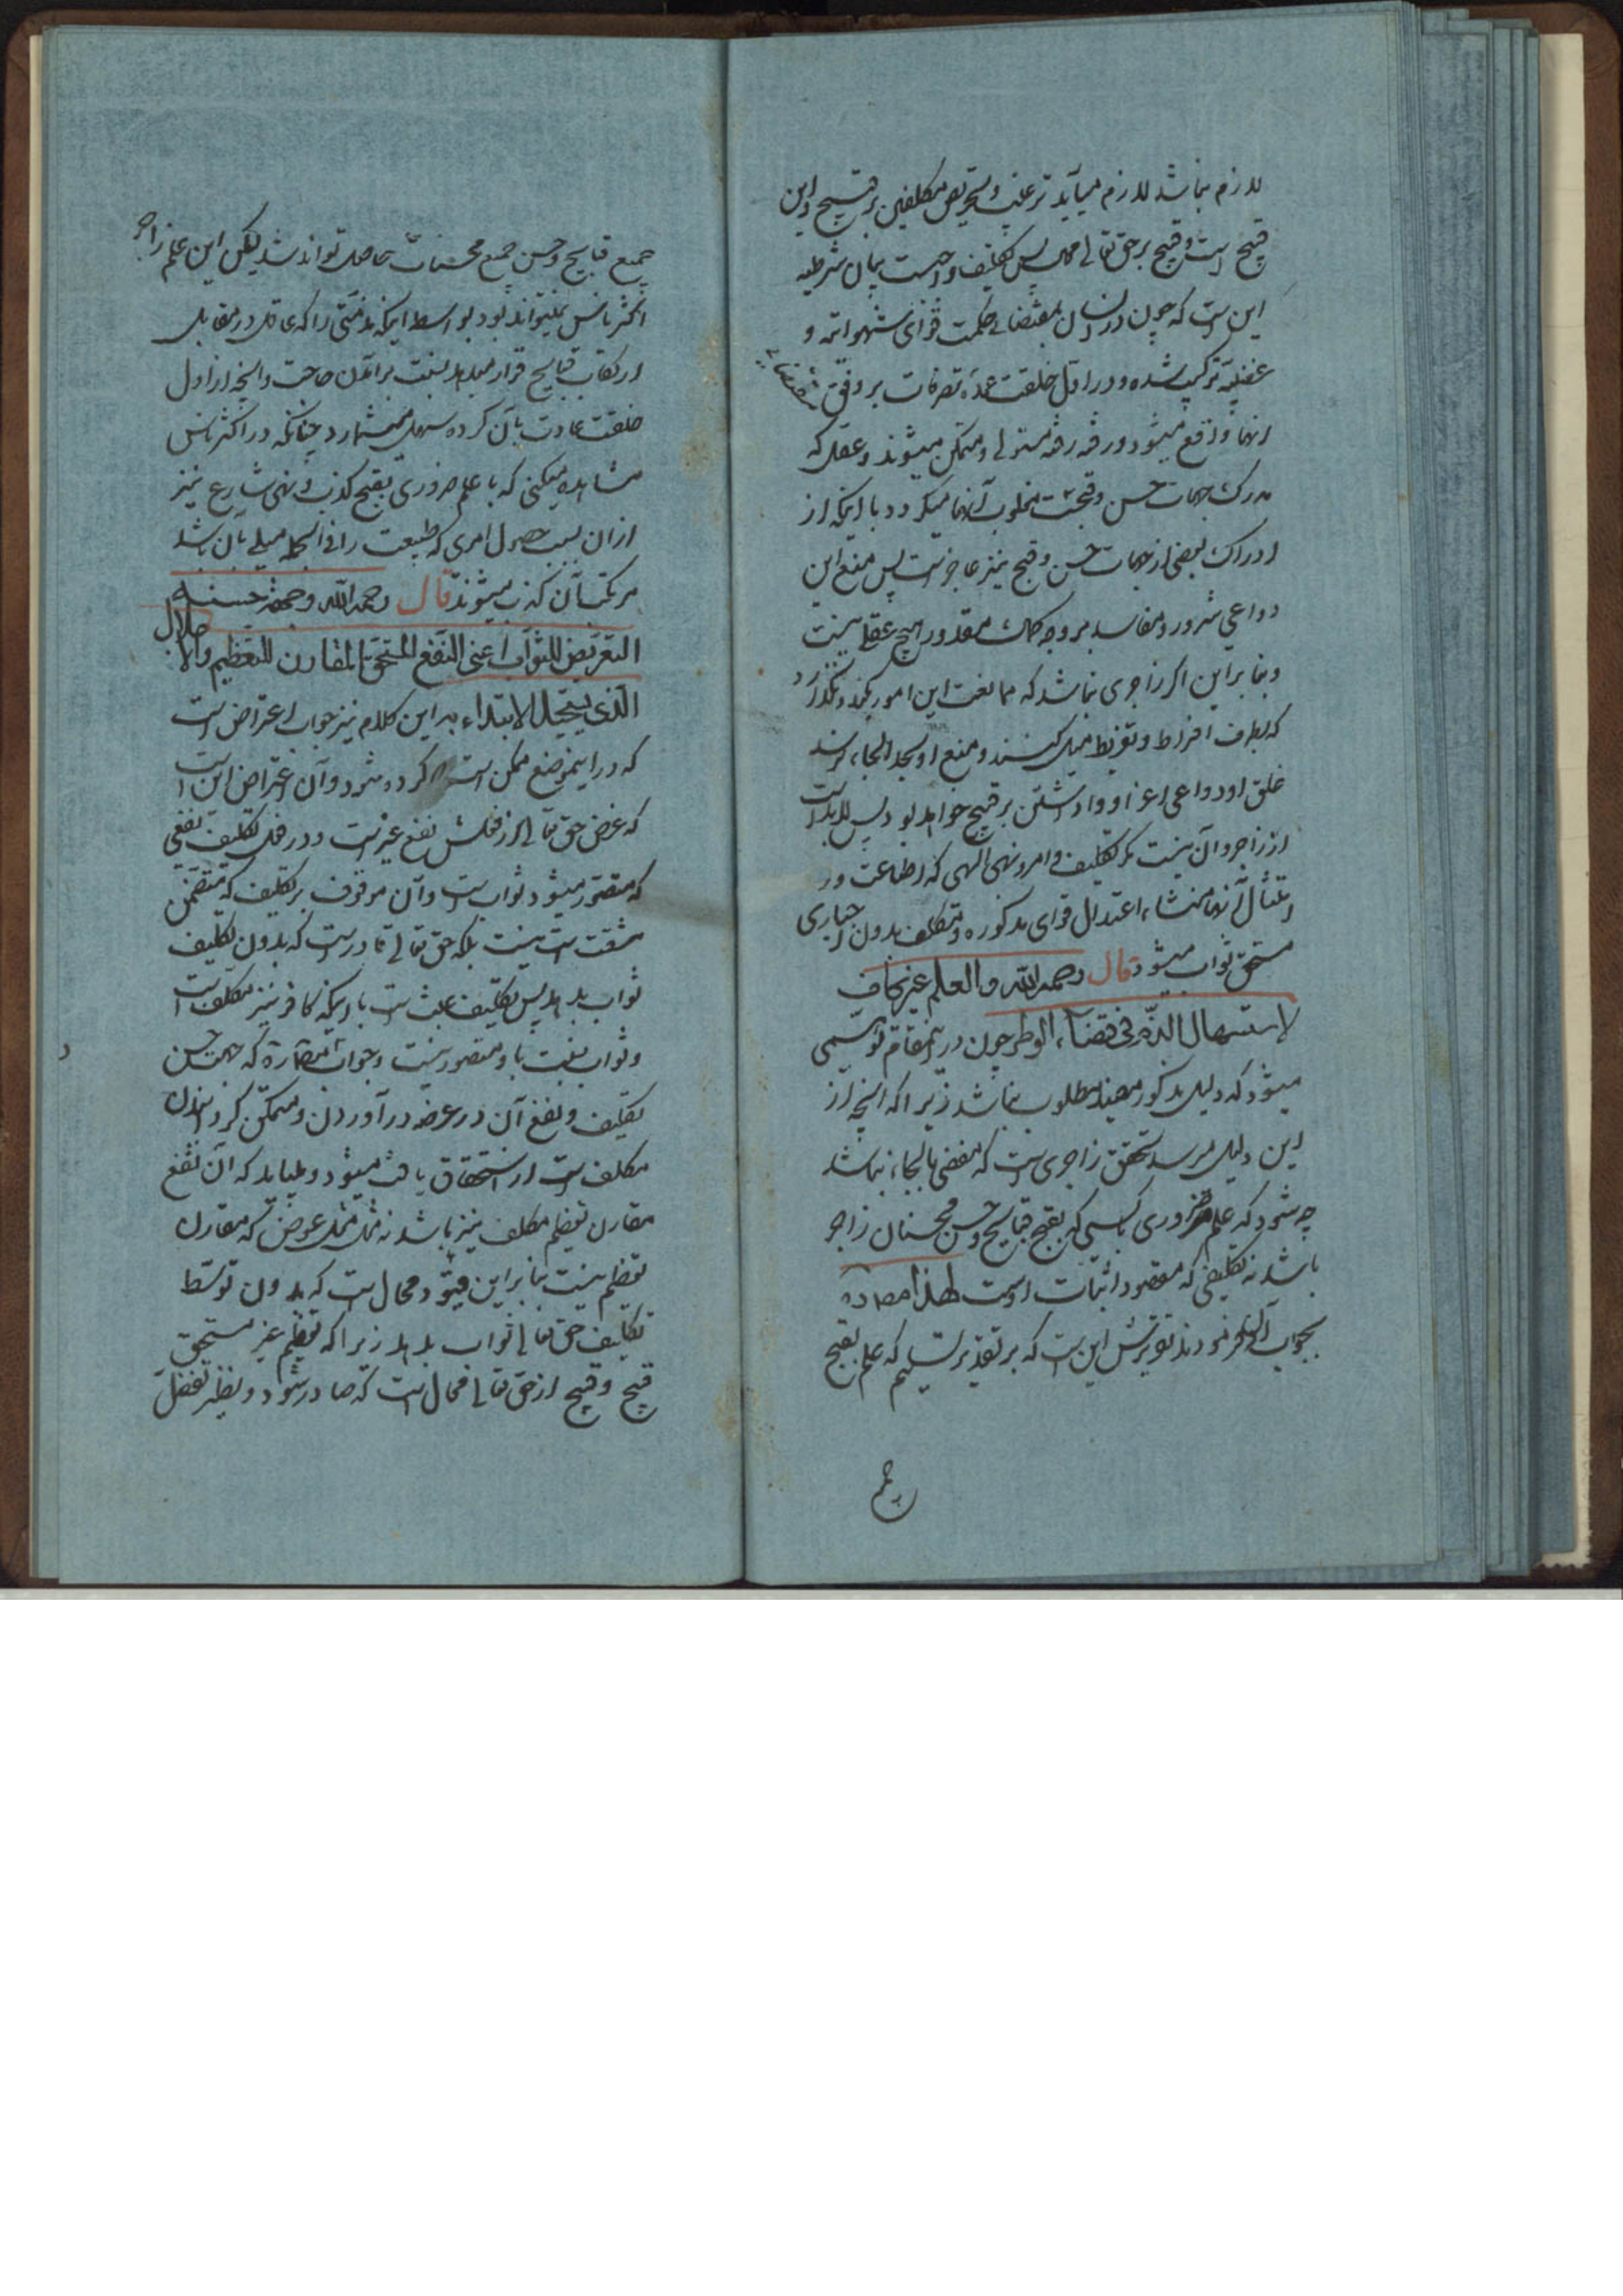 لازم نباشد لازم میآید ترغیب و تحریص مکلفین بر قبیح و این
قبیح است و قبیح بر حق تعالی محال پس تکلیف واجبست بیان شرطیه
این است که چون در انسان بمقتضای حکمت قوای شهوانیه و
غضبیه ترکیب شده و در اول خلقت عمده تصرفات بر وفق مقتضای
آنها واقع میشود و رفته رفته مستولی و متمکن میشوند و عقل که
مدرک جهات حسن و قبحست مغلوب آنها میگردد با اینکه از
ادراک بعضی از جهات حسن و قبح نیز عاجز است پس منع این
دواعی شرور و مفاسد بر وجه کمال مقدور هیچ عقلی نیست
و بنا بر این اگر زاجری نباشد که ممانعت این امور بکند و نگذارد
که بطرف افراط و تفریط میل کنند و منع او بحد الجاء نرسد
خلق او دواعی اغرا و واداشتن بر قبیح خواهد بود پس لابد است
از زاجر و آن نیست مگر تکلیف و امر و نهی الهی که اطاعت و
امتثال آنها منشاء اعتدال قوای مذکوره و مکلف بدون اجباری
مستحق ثواب میشود قال رحمه الله و العلم غیر کاف
لاستسهال الذم فی قضاء الوطر چون در این مقام توهمی
میشود که دلیل مذکور مفید مطلوب نباشد زیرا که آنچه از
این دلیل میرسد تحقق زاجری است که مفضی بالجاء نباشد
چه شود که علم ضروری باشد که بقبح قبایح و حسن محسنات زاجر
باشد نه تکلیفی که مقصود اثبات اوست لهذا مصادره
بجواب آن نمودند تقریرش این است که بر تقدیر تسلیم که علم بقبح
جمیع
جمیع قبایح و حسن جمیع محسنات حاصل تواند شد لیکن این علم زاجر
اکثر ناس نمیتواند بود بواسطه اینکه مذمتی را که عاقل در مقابل
ارتکاب قبایح قرار میدهد نسبت برآمدن حاجت و آنچه از اول
خلقت عادت بآن کرده سهل میشمارد چنانکه در اکثر ناس
مشاهده میکنی که با علم ضروری بقبح کذب و نهی شارع نیز
از آن بسبب حصول امری که طبیعت را فی الجمله میلی بآن باشد
مرتکب آن کذب میشوند قال رحمه الله و جهة حسنه
التعریض للثواب اعنی النفع المستحق المقارن للتعظیم والاجلال
الذی یستحیل الابتداء به این کلام نیز جواب اعتراض است
که در این موضع ممکن است کرده شود و آن اعتراض این است
که غرض حق تعالی از فعلش نفع غیر است و در فعل تکلیف نفعی
که متصور میشود ثواب است و آن موقوف بر تکلیف که متضمن
مشقت است نیست بلکه حق تعالی قادر است که بدون تکلیف
ثواب بدهد پس تکلیف عبث است با اینکه کافر نیز مکلف است
و ثواب نسبت باو متصور نیست و جواب که جهت حسن
تکلیف و نفع آن در عرضه درآوردن و متمکن گردانیدن
مکلف است از استحقاق یافت میشود و میباید که آن نفع
مقارن تعظیم مکلف نیز باشد نه مثل عوض که مقارن
تعظیم نیست بنا بر این قیود محال است که بدون توسط
تکلیف حق تعالی ثواب بدهد زیرا که تعظیم غیر مستحق
قبیح و قبیح از حق تعالی محال است که صادر شود و بنظر تفضل